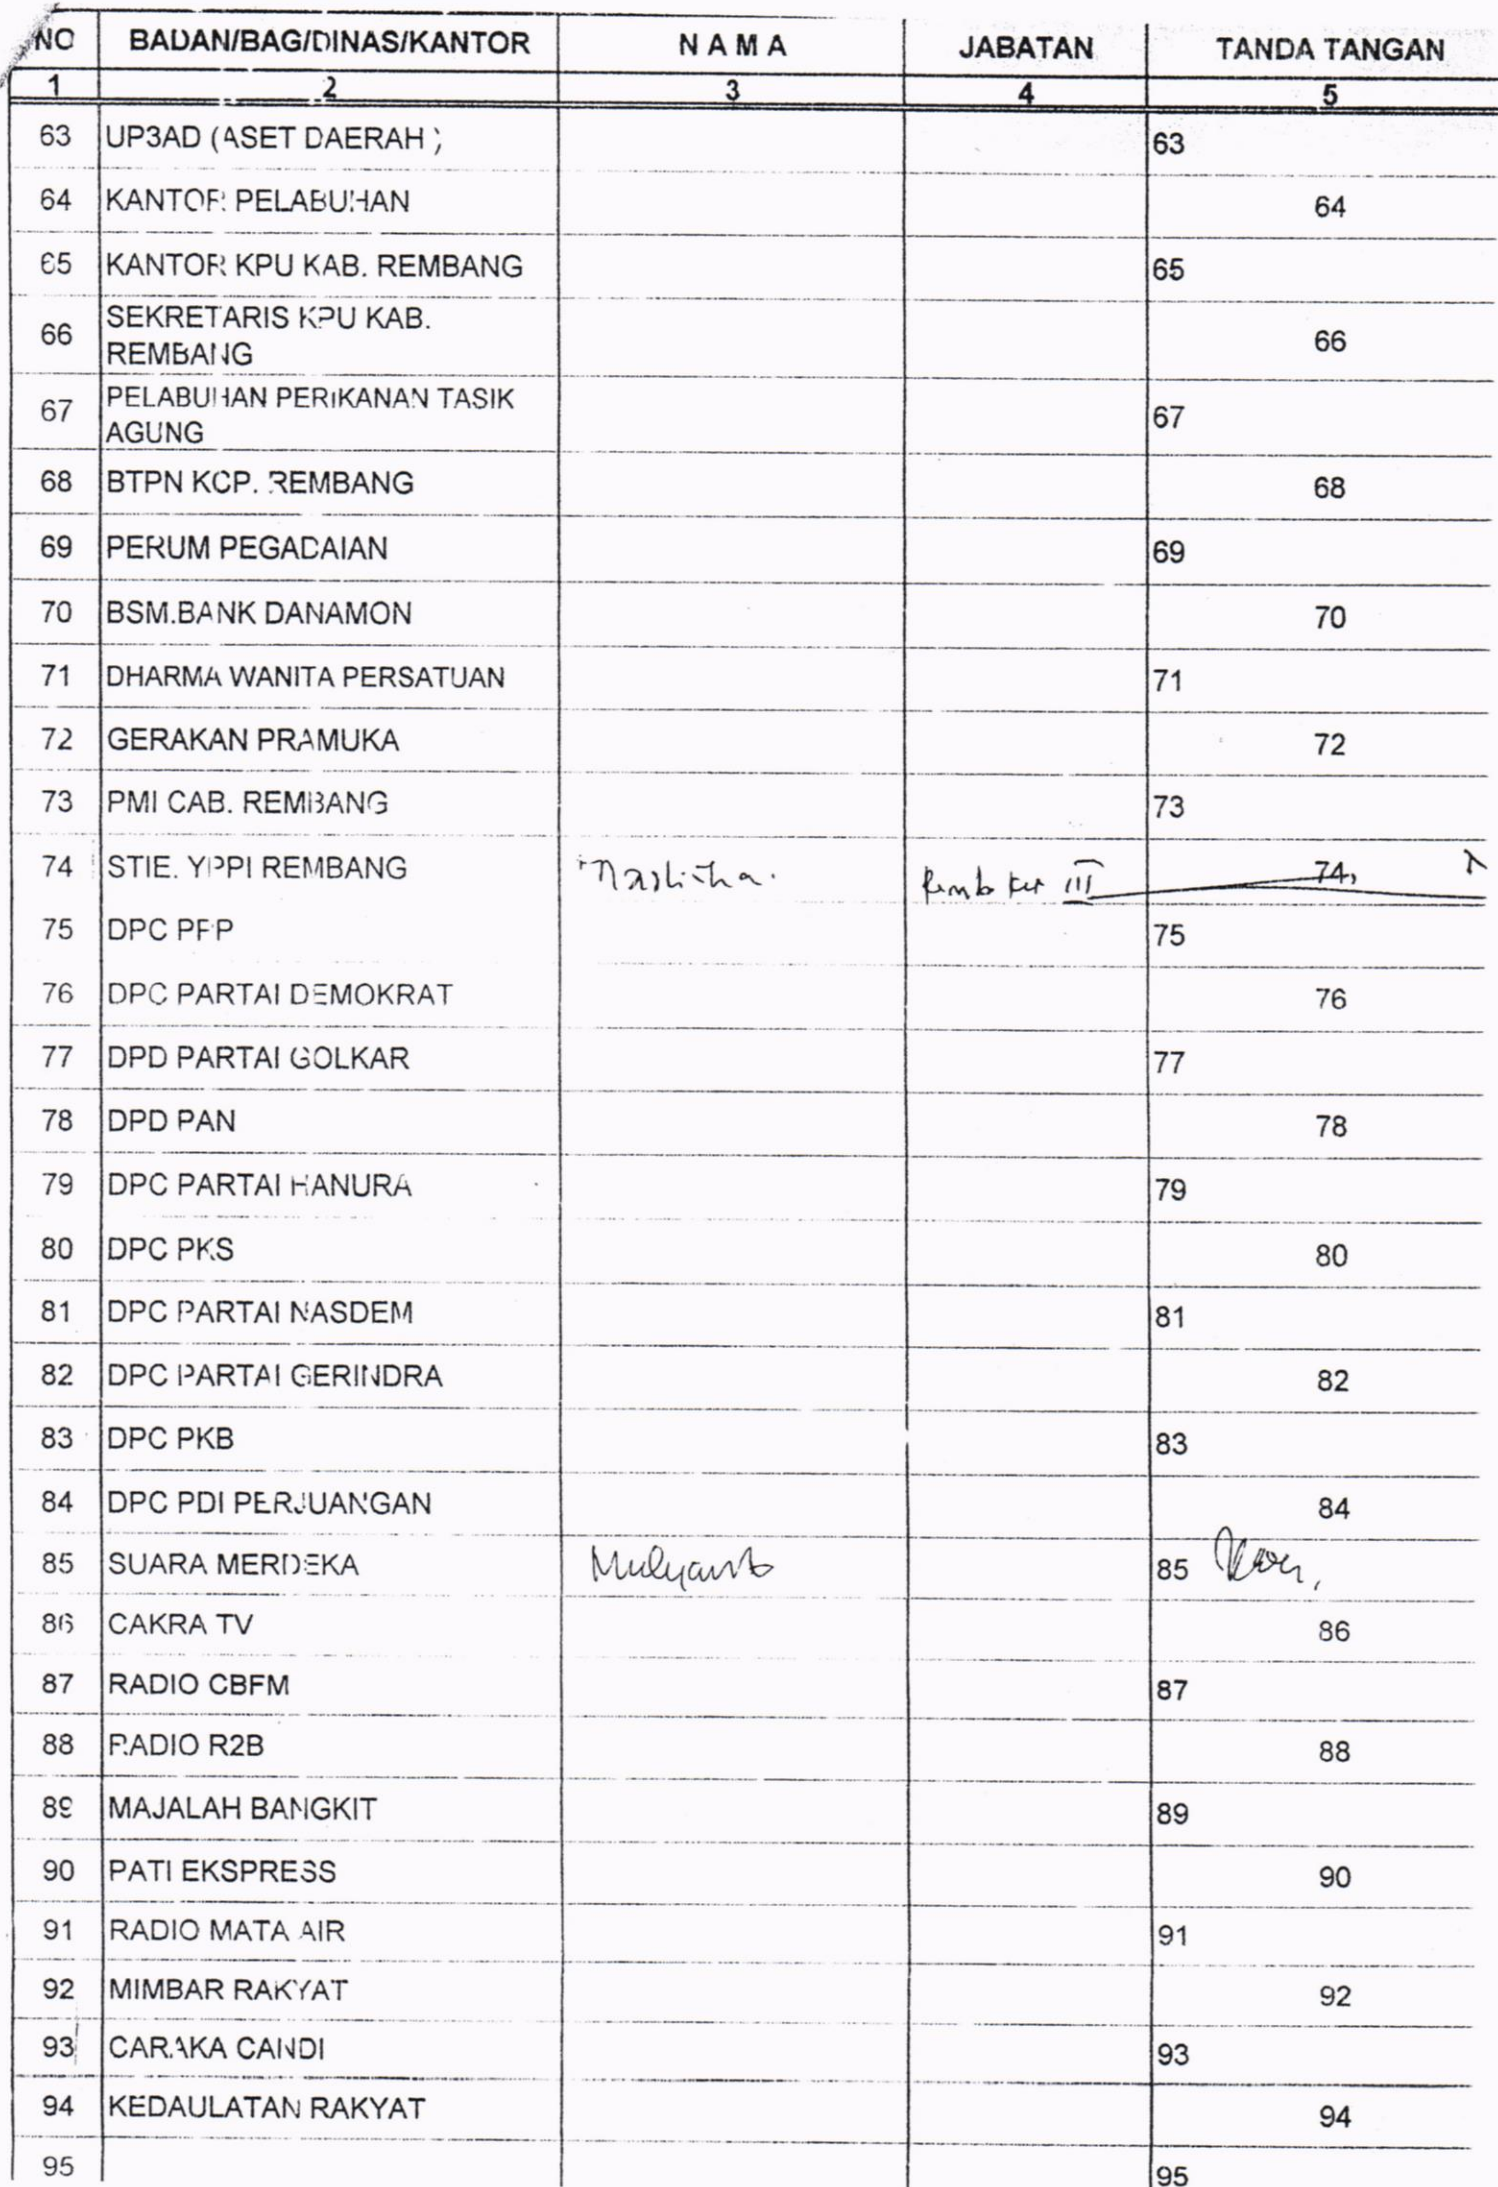 NO BADAN/BAG/DINAS/KANTOR N A M A JABATAN TANDA TANGAN
1 2 3 4 5
63 UP3AD (ASET DAERAH ) 63
64 KANTOR PELABUHAN 64
65 KANTOR KPU KAB. REMBANG 65
66 SEKRETARIS KPU KAB. REMBANG 66
67 PELABUHAN PERIKANAN TASIK AGUNG 67
68 BTPN KCP. REMBANG 68
69 PERUM PEGADAIAN 69
70 BSM.BANK DANAMON 70
71 DHARMA WANITA PERSATUAN 71
72 GERAKAN PRAMUKA 72
73 PMI CAB. REMBANG 73
74 STIE. YPPI REMBANG III 74
75 DPC PPP 75
76 DPC PARTAI DEMOKRAT 76
77 DPD PARTAI GOLKAR 77
78 DPD PAN 78
79 DPC PARTAI HANURA 79
80 DPC PKS 80
81 DPC PARTAI NASDEM 81
82 DPC PARTAI GERINDRA 82
83 DPC PKB 83
84 DPC PDI PERJUANGAN 84
85 SUARA MERDEKA Mulyanto 85
86 CAKRA TV 86
87 RADIO CBFM 87
88 RADIO R2B 88
89 MAJALAH BANGKIT 89
90 PATI EKSPRESS 90
91 RADIO MATA AIR 91
92 MIMBAR RAKYAT 92
93 CARAKA CANDI 93
94 KEDAULATAN RAKYAT 94
95 95